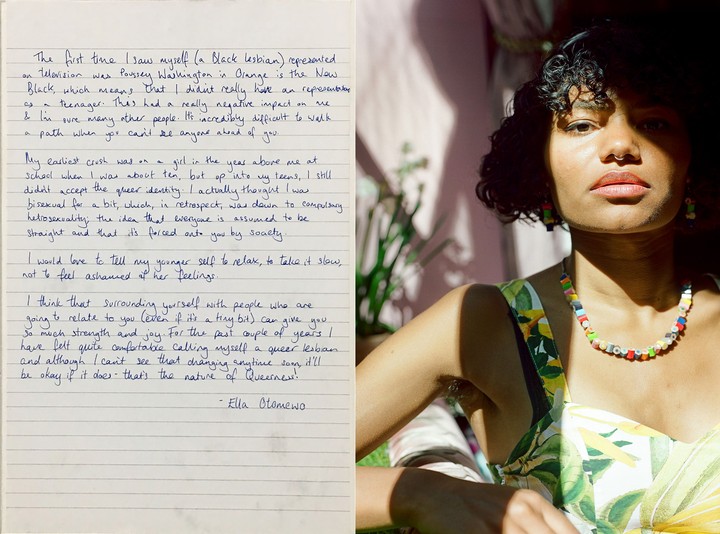 The first time I saw myself (a Black lesbian) represented
on television was Poussey Washington in Orange is the New
Black, which means that I didn't really have an representation
as a teenager. This had a really negative impact on me
& I'm sure many other people. It's incredibly difficult to walk
a path when you can't see anyone ahead of you.
My earliest crush was on a girl in the year above me at
school when I was about ten, but up into my teens, I still
didn't accept the queer identity. I actually thought I was
bisexual for a bit, which, in retrospect, was down to compulsory
hetrosexuality: the idea that everyone is assumed to be
straight and that it's forced onto you by society.
I would love to tell my younger self to relax, to take it slow,
not to feel ashamed of her feelings.
I think that surrounding yourself with people who are
going to relate to you (even if it's a tiny bit) can give you
so much strength and joy. For the past couple of years I
have felt quite comfortable calling myself a queer lesbian
and although I can't see that changing anytime soon, it'll
be okay if it does - that's the nature of Queerness!
- Ella Otomewo